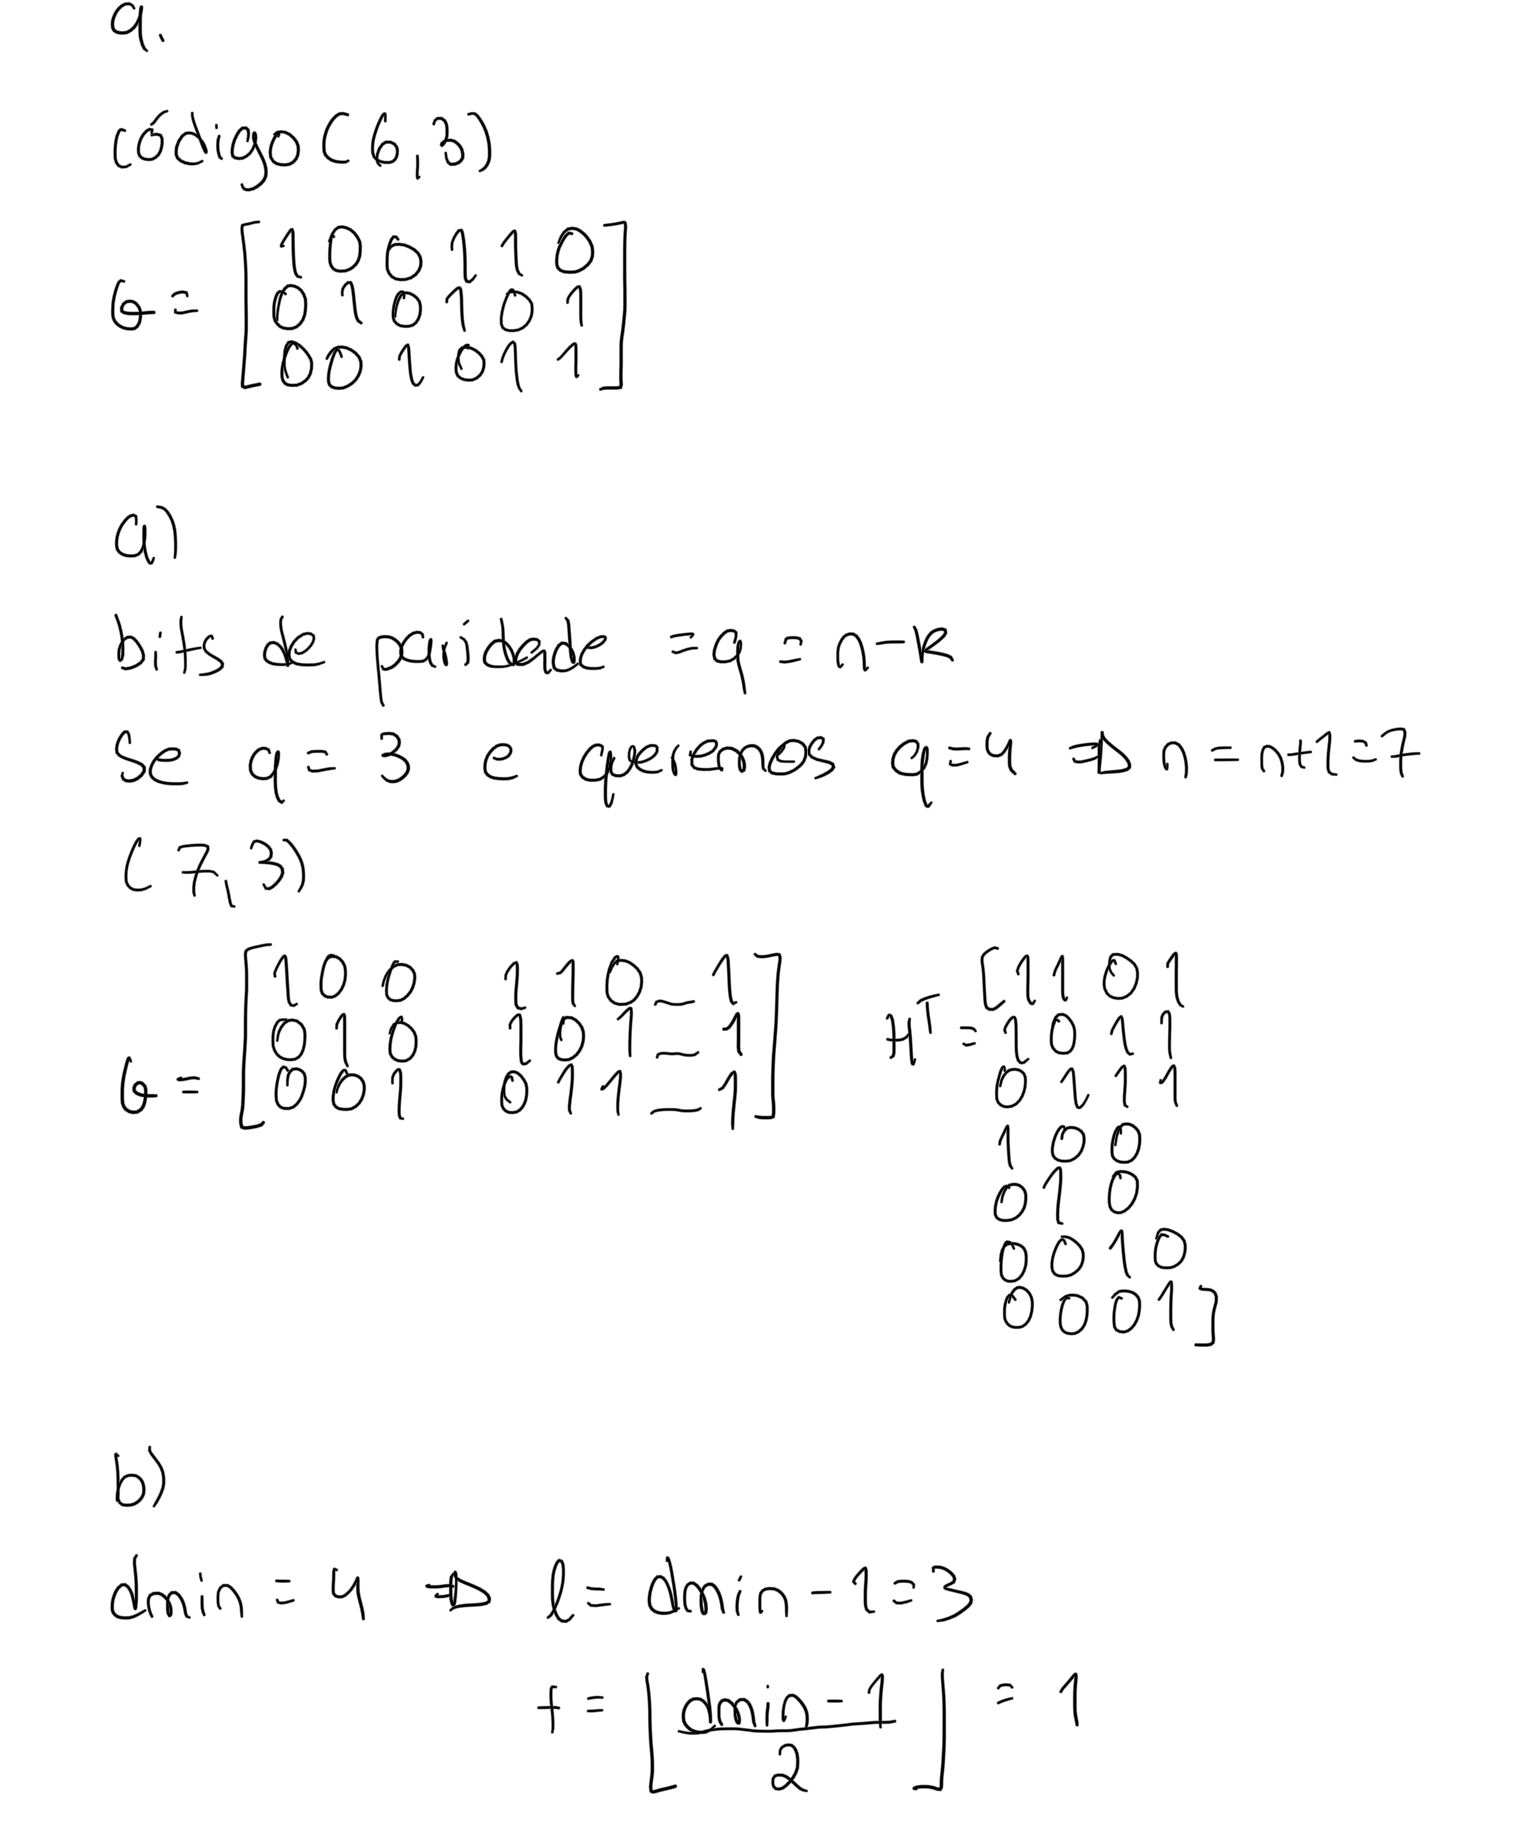 9.
código (6,3)
G = [1 0 0 1 1 0
0 1 0 1 0 1
0 0 1 0 1 1]
a)
bits de paridade = q = n-k
Se q = 3 e queremos q=4 ⇒ n = n+1=7
(7,3)
G = [1 0 0 1 1 0 _ 1
0 1 0 1 0 1 _ 1
0 0 1 0 1 1 _ 1]
H^T = [1 1 0 1
1 0 1 1
0 1 1 1
1 0 0
0 1 0
0 0 1 0
0 0 0 1]
b)
dmin = 4 ⇒ l = dmin - 1 = 3
t = ⌊(dmin - 1)/2⌋ = 1